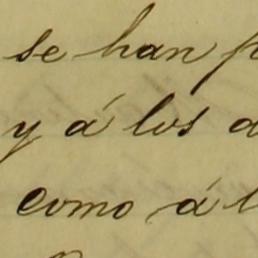 se han
y á los
como á